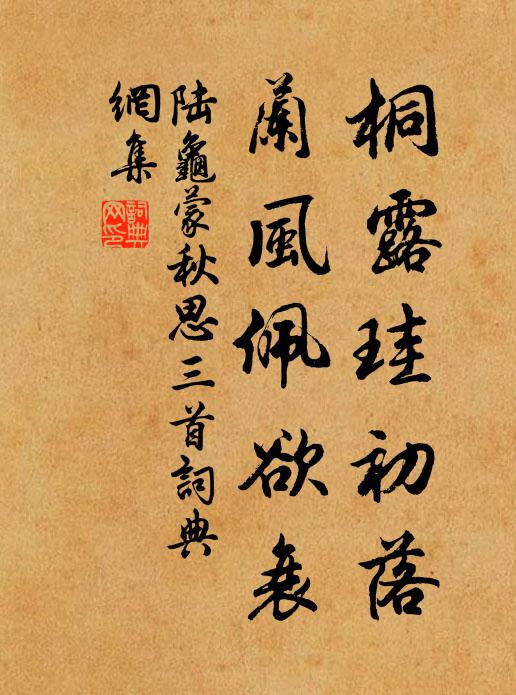 桐露珪初落
蘭風佩欲衰
陆龜蒙秋思三首詞典
網集
詞典网印